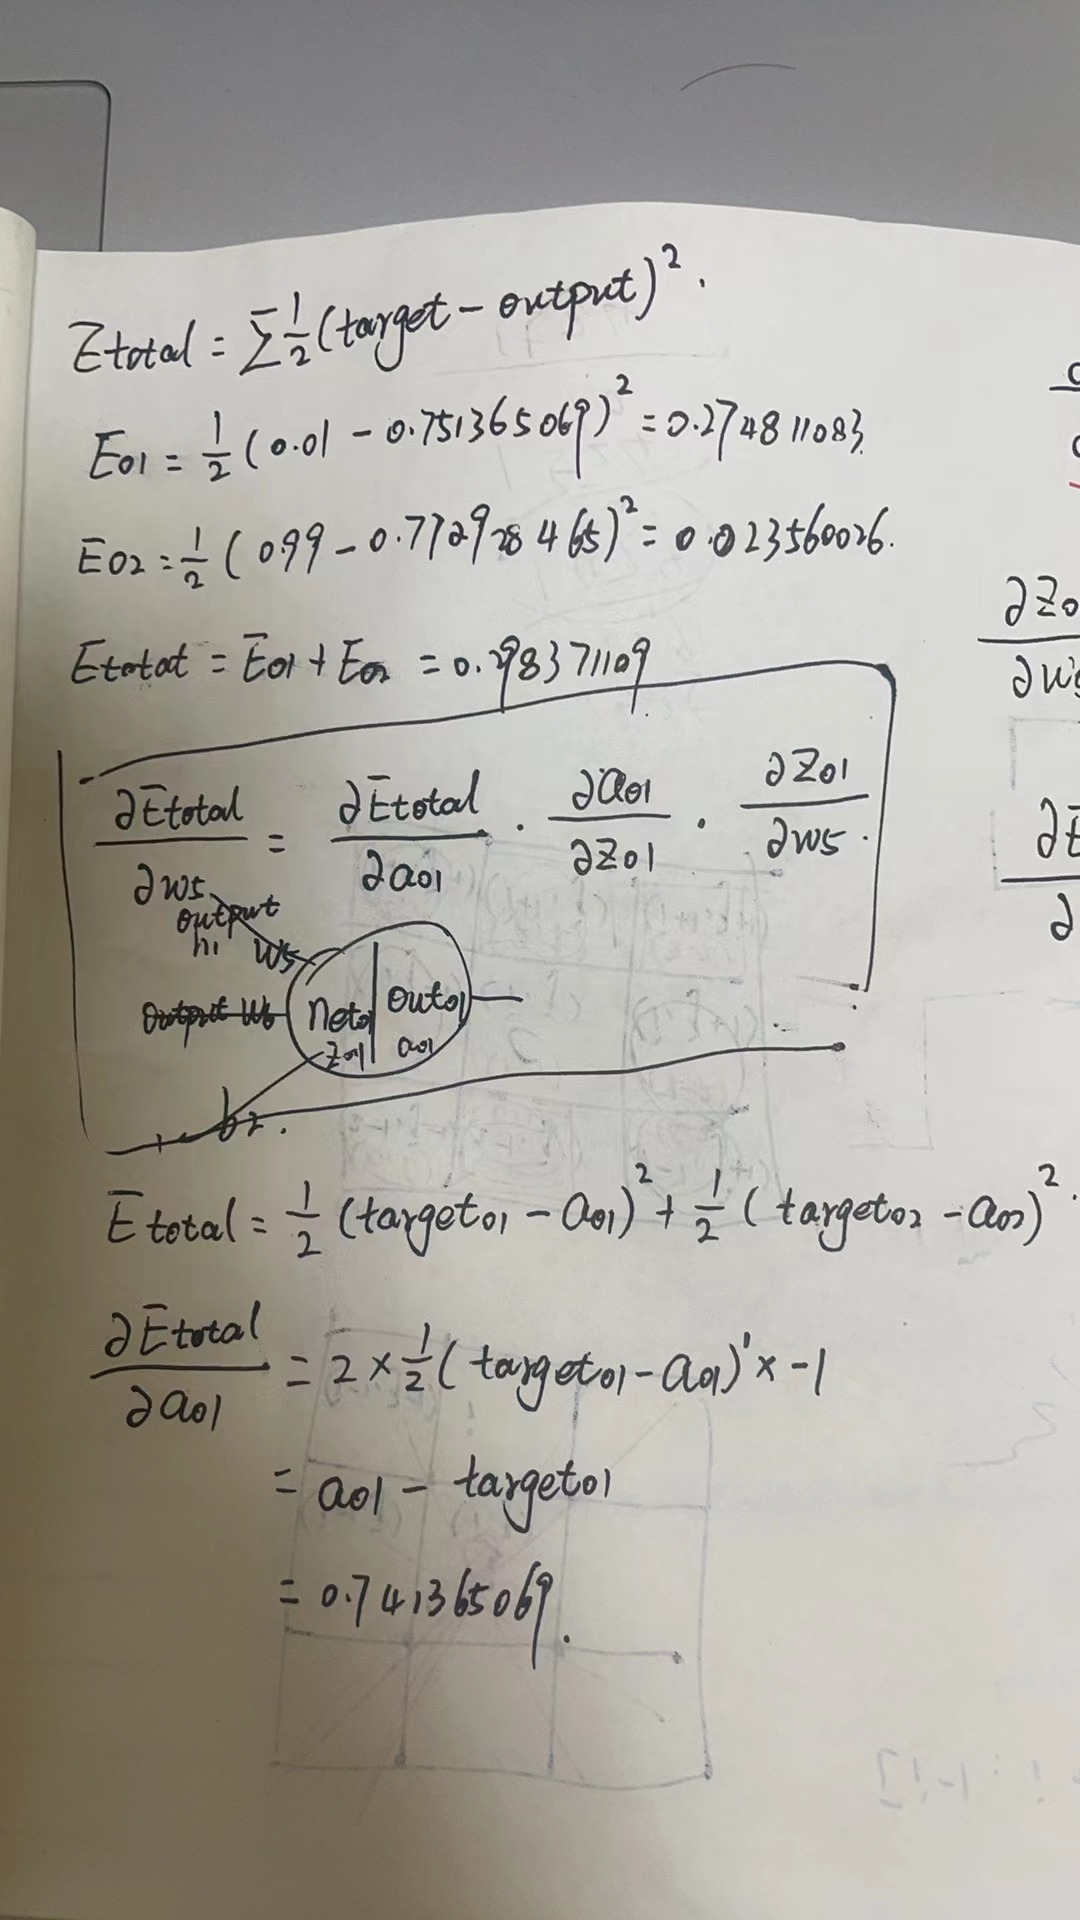 Etotal = Σ 1/2 (target - output)².
E01 = 1/2 (0.01 - 0.751365069)² = 0.274811083.
E02 = 1/2 (0.99 - 0.772928465)² = 0.023560026.
Etotal = E01 + E02 = 0.298371109
∂Etotal/∂w5 = ∂Etotal/∂a01 · ∂a01/∂z01 · ∂z01/∂w5.
output
h1 w5
output w6
net01 | out01
z01 | a01
b2.
Etotal = 1/2 (target01 - a01)² + 1/2 (target02 - a02)².
∂Etotal/∂a01 = 2 × 1/2 (target01 - a01)¹ × -1
= a01 - target01
= 0.741365069.
∂z0
∂w5
∂E
∂